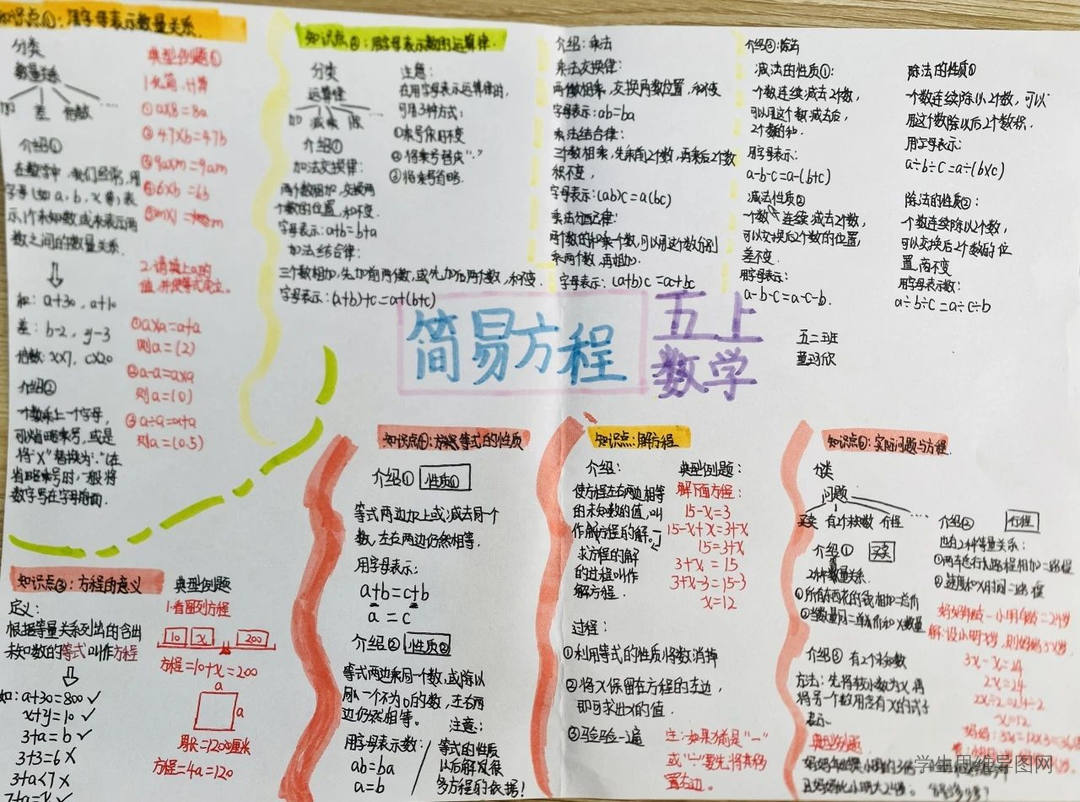 知识点①：用字母表示数量关系.
分类
数量关系
加 差 倍数 …
介绍①
在数学中，我们经常，用
字母（如a、b、x等）表
示，个未知数，或来表示两
数之间的数量关系.
和：a+30，a+10
差：b-2，y-3
倍数：x×7，c×20
介绍②
一个数乘上一个字母，
可以省略乘号，或是
将“×”替换为“·”（在
省略乘号时，一般将
数字写在字母前面.
典型例题①
1.化简，计算
① a×8=8a
② 47×b=47b
③ 9a×m=9am
④ 6×b=6b
⑤ m×1=m
2.请填上a的
值，并使等式成立。
① a×a=a+a
则a=(2)
② a-a=a×a
则a=(0)
③ a÷a=a+a
则a=(0.5)
知识点②：用字母表示数的运算律.
分类
运算律
加 减 乘 除
介绍①
加法交换律：
两个数相加，交换两
个数的位置，和不变.
字母表示：a+b=b+a
加法结合律：
三个数相加，先加前两个数，或先加后两个数，和不变.
字母表示：(a+b)+c=a+(b+c)
注意：
在用字母表示运算律时，
可用3种方式：
①乘号保持不变
②将乘号替成“·”
③将乘号省略.
介绍：乘法
乘法交换律：
两个数相乘，交换两数位置，积不变
字母表示：ab=ba
乘法结合律：
三个数相乘，先乘前2个数，再乘后2个数
积不变，
字母表示：(ab)c=a(bc)
乘法分配律：
两个数的和乘一个数，可以用这个数分别
乘两个数，再相加.
字母表示：(a+b)c=ac+bc
介绍③：除法
减法的性质①：
一个数连续减去2个数，
可以用这个数减去后，
2个数的和.
用字母表示：
a-b-c=a-(b+c)
减法性质②
一个数，连续减去2个数，
可以交换后2个数的位置，
差不变.
用字母表示：
a-b-c=a-c-b.
除法的性质①
一个数连续除以2个数，可以
用这个数除以后2个数积.
用字母表示：
a÷b÷c=a÷(b×c)
除法的性质②：
一个数连续除以2个数，
可以交换后2个数的位
置，商不变
用字母表示数：
a÷b÷c=a÷c÷b
简易方程
五上
数学
五二班
知识点③：方程的意义
定义：
根据等量关系列出的含出
未知数的等式叫作方程
如：a+30=800✓
x+y=10 ✓
3+a=b ✓
3+3=6 ✗
3+a<7 ✗
典型例题
1.看图列方程
10 x 200
方程=10+x=200
a
a
周长=120厘米
方程=4a=120
知识点④：方程等式的性质
介绍① 性质①
等式两边加上或减去同一个
数，左右两边仍然相等.
用字母表示：
a+b=c+b
a = c
介绍② 性质②
等式两边乘同一个数，或除以
同一个不为0的数，左右两
边仍然相等。
用字母表示数：
ab=ba
a=b
注意：
等式的性质
以后解发很
多方程的依据！
知识点：解方程.
介绍：
使方程左右两边相等
的未知数的值，叫
作解方程的解.
求方程的解
的过程叫作
解方程.
典型例题：
解下面方程：
15-x=3
15-x+x=3+x
15=3+x
3+x=15
3+x-3=15-3
x=12
过程：
①利用等式的性质将数消掉
②将x保留在方程的左边，
即可求出x的值.
③验一遍
注：如果符是“-”
或“÷”要先将其移
置右边。
知识点⑥：实际问题与方程.
分类
问题
买卖 有2个未知数 行程
介绍① 买卖
2种数量关系.
①所有西花的钱相加=总价
②当数量同=单价和×数量
介绍② 行程
也有2种等量关系：
①两车总行的路程相加=路程
②速度和×时间=路程
介绍③ 有2个未知数
方法：先将较小数为x，再
将另一个数用含有x的式子
表示.
典型例题
妈妈年龄-小明年龄=24岁
解：设小明x岁，则妈妈3x岁.
3x-x=24
2x=24
2x÷2=24÷2
x=12
妈妈：3x=12×3=36岁
学生思维导图网